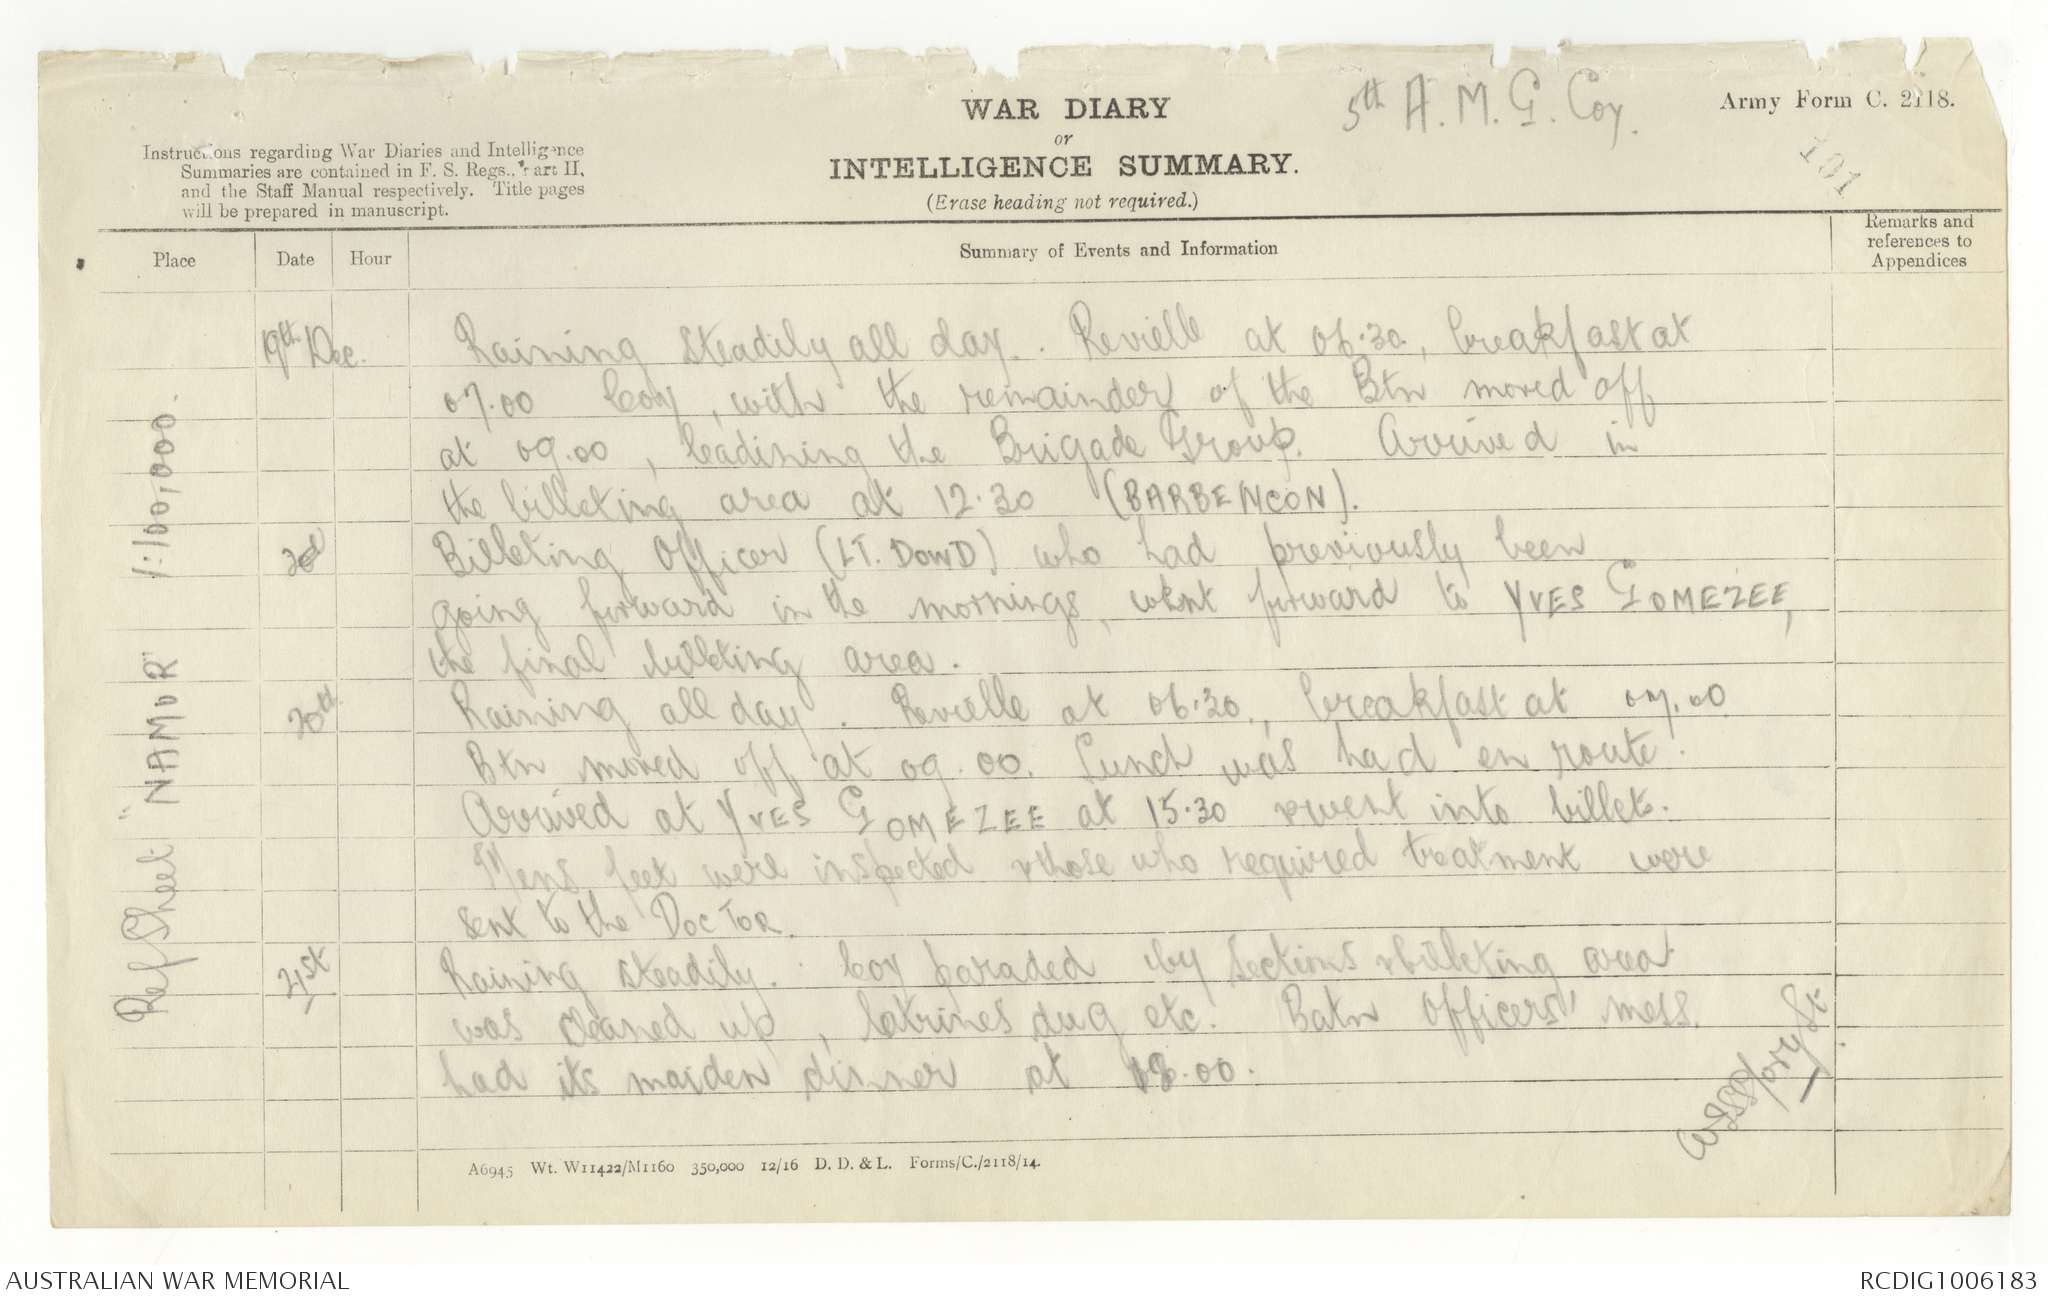 5th A.M.G. Coy.
Army Form C. 2118.
WAR DIARY
or
INTELLIGENCE SUMMARY.
(Erase heading not required.)
Instructions regarding War Diaries and Intelligence
Summaries are contained in F. S. Regs., Part II,
and the Staff Manual respectively. Title pages
will be prepared in manuscript.
101
Place
Date
Hour
Summary of Events and Information
Remarks and
references to
Appendices
Ref Sheet "NAMUR" 1:100,000.
19th Dec. Raining steadily all day. Revielle at 06.30, breakfast at
07.00 Coy, with the remainder of the Btn moved off
at 09.00, leadining the Brigade Group. Arrived in
the billeting area at 12.30 (BARBENCON).
Billeting Officer (LT. DOWD) who had previously been
going forward in the mornings, went forward to YVES GOMEZEE,
the final billeting area.
20th Raining all day. Revielle at 06.30, breakfast at 07.00
Btn moved off at 09.00. Lunch was had en route.
Arrived at YVES GOMEZEE at 15.30 & went into billets.
Mens feet were inspected & those who required treatment were
sent to the DOCTOR.
21st Raining steadily. Coy paraded by Sections & billeting area
was cleaned up, latrines dug etc. Batn Officers' mess
had its maiden dinner at 18.00.
A6945 Wt. W11422/M1160 350,000 12/16 D. D. & L. Forms/C./2118/14.
AUSTRALIAN WAR MEMORIAL
RCDIG1006183